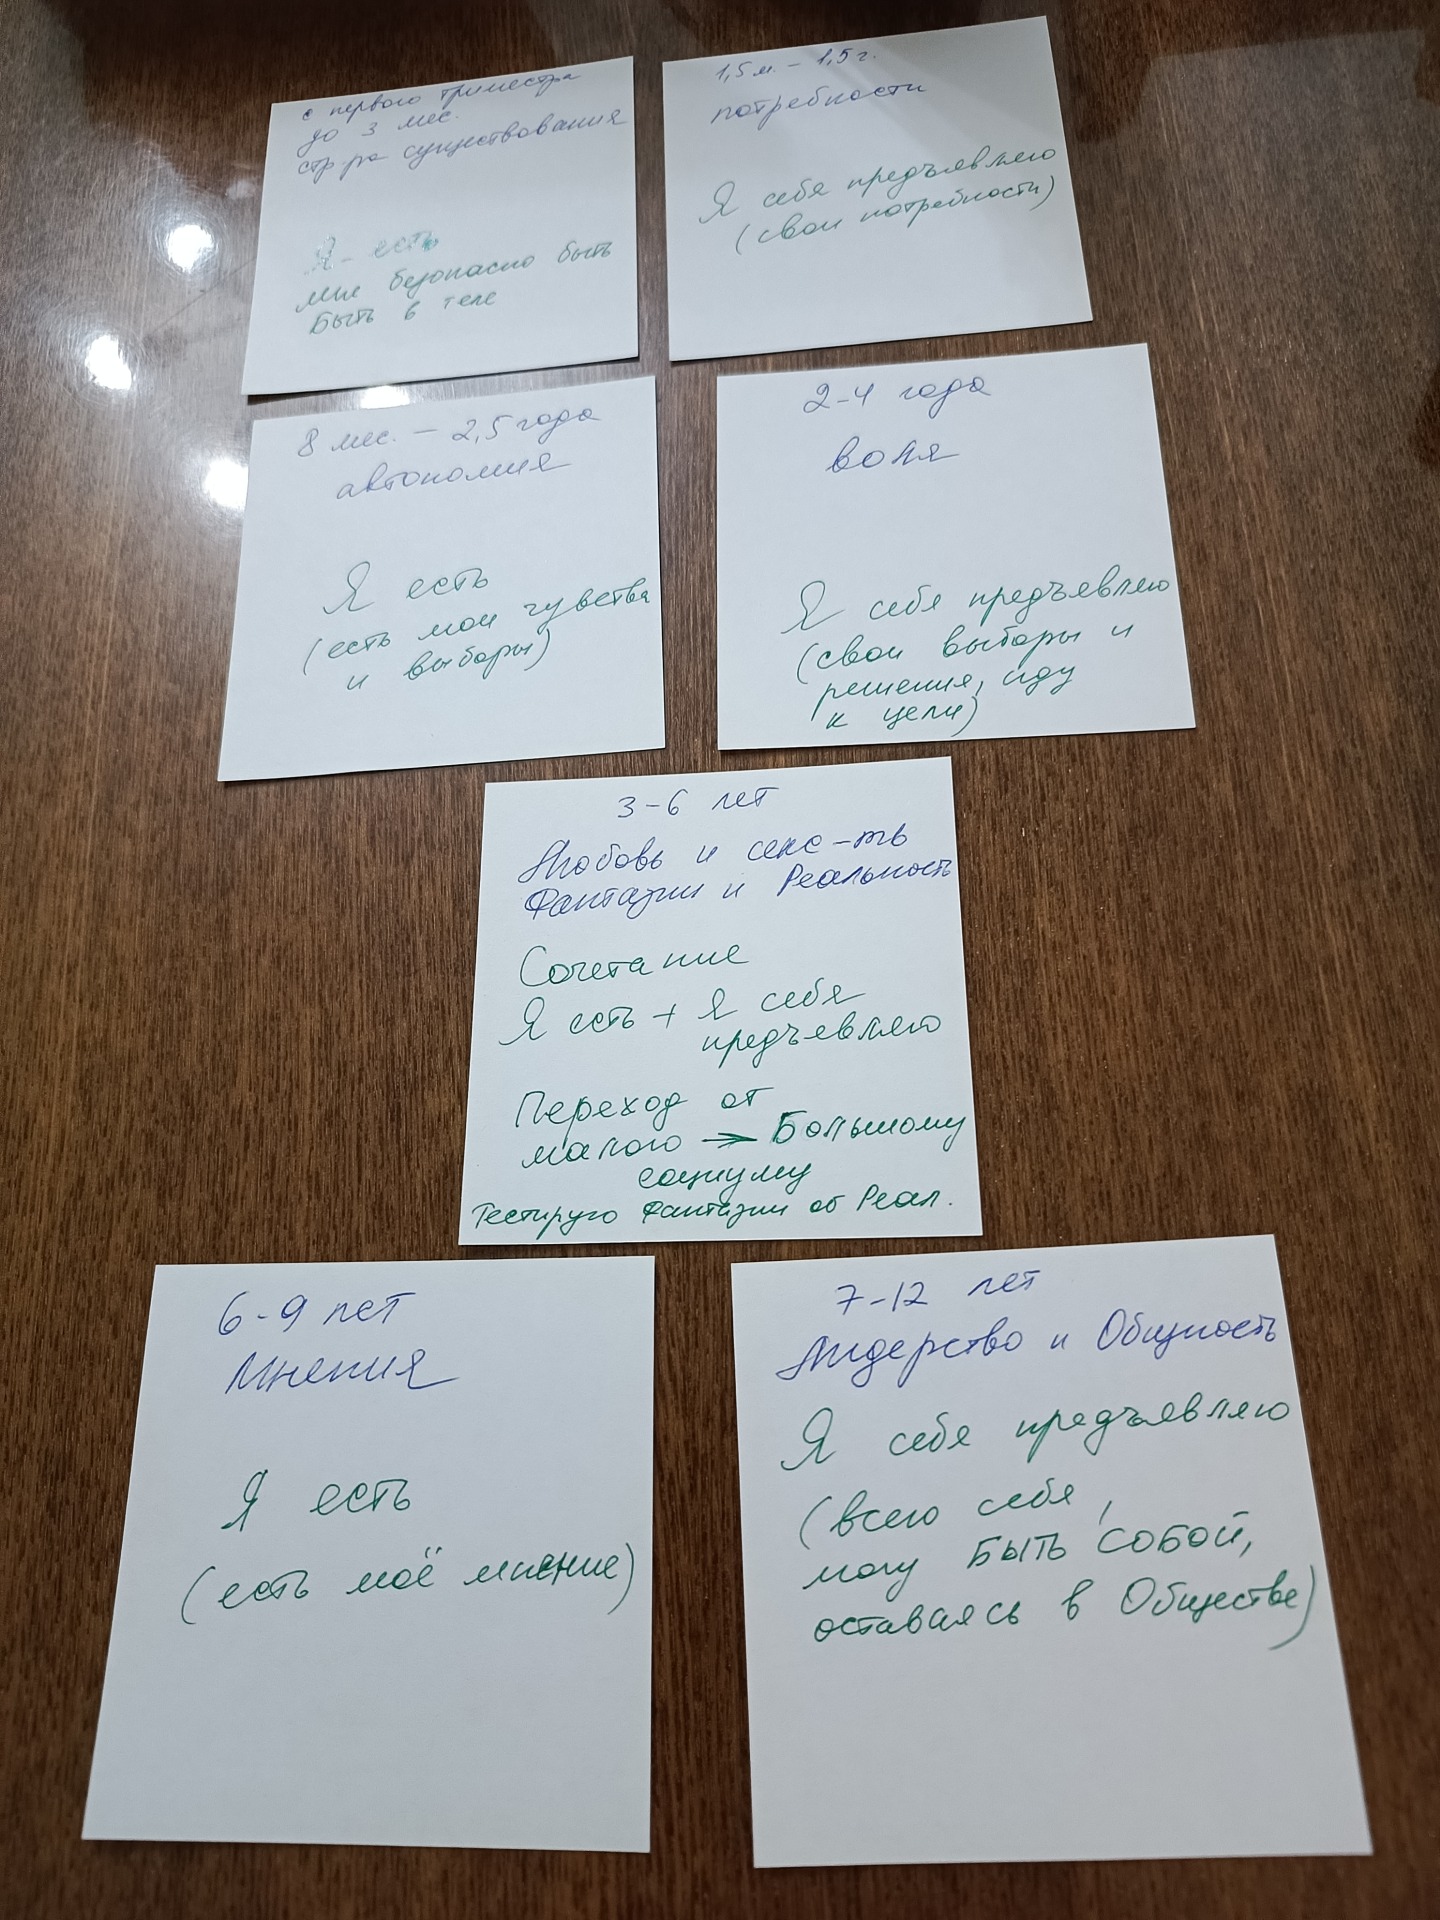 с первого триместра
до 3 мес.
стр-ра существования
Я - есть
мне безопасно быть
Быть в теле
1,5 м. - 1,5 г.
потребности
Я себя предъявляю
(свои потребности)
8 мес. - 2,5 года
автономия
Я есть
(есть мои чувства
и выборы)
2-4 года
воля
Я себя предъявляю
(свои выборы и
решения, иду
к цели)
3-6 лет
Любовь и секс-ть
Фантазии и Реальность
Сочетание
Я есть + Я себя
предъявляю
Переход от
малого → Большому
социуму
Тестирую Фантазии об Реал.
6-9 лет
Мнения
Я есть
(есть моё мнение)
7-12 лет
Лидерство и Общность
Я себя предъявляю
(всего себя,
могу БЫТЬ СОБОЙ,
оставаясь в Обществе)